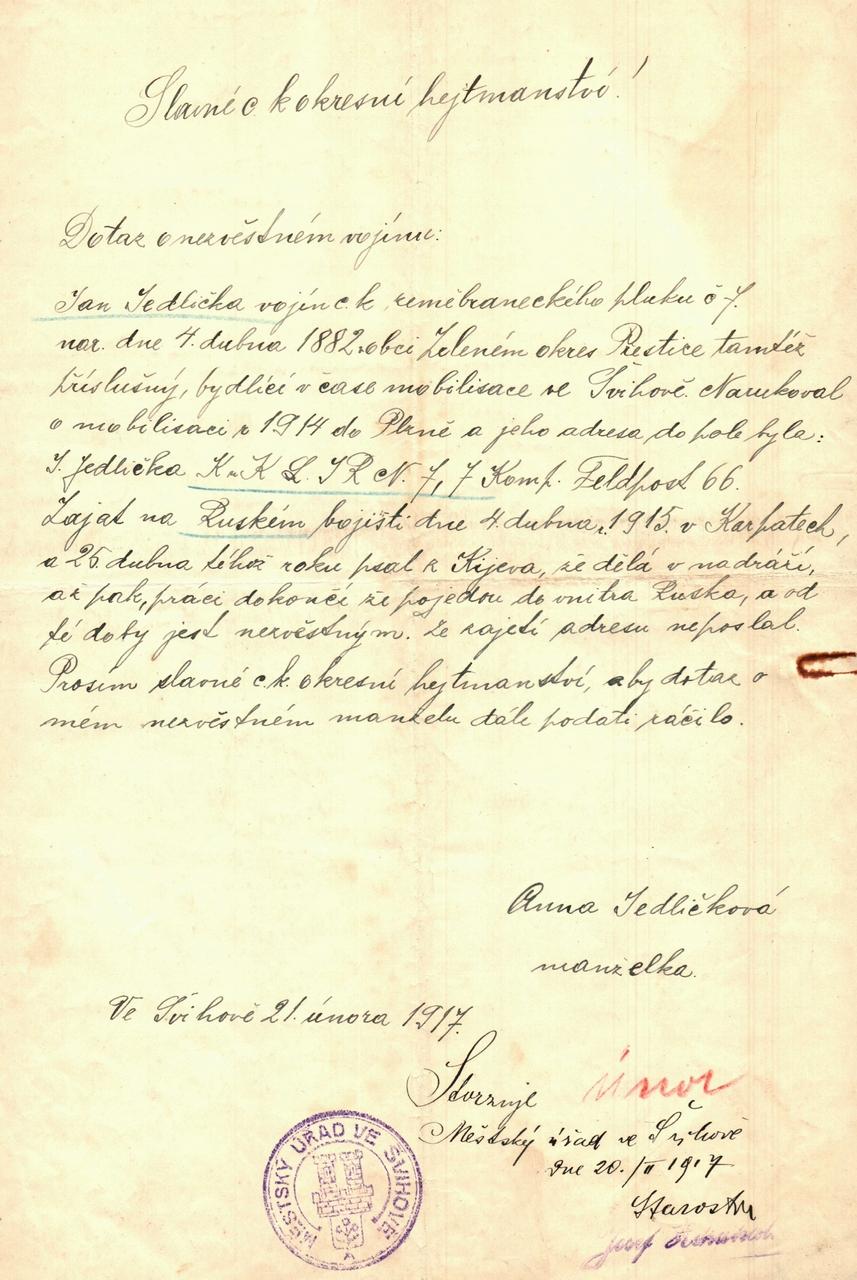 Slavné c. k okresní hejtmanství!
Dotaz o nezvěstném vojínu:
Jan Jedlička vojín c. k. zeměbraneckého pluku č 7.
nar. dne 4. dubna 1882 v obci Zeleném okres Přestice tamtéž
příslušný, bydlící v čase mobilisace ve Švihově. Narukoval
o mobilisaci r 1914 do Plzně a jeho adresa do pole byla:
J. Jedlička K u K L. I R N. 7, 7 Komp. Feldpost 66.
Zajat na Ruském bojišti dne 4. dubna r. 1915. v Karpatech,
a 25. dubna téhož roku psal z Kijeva, že dělá v nadráží,
až pak, práci dokončí že pojedou do vnitra Ruska, a od
té doby jest nezvěstným. Ze zajetí adresu neposlal.
Prosím slavné c. k. okresní hejtmanství, aby dotaz o
mém nezvěstném manželu dále podati ráčilo.
Anna Jedličková
manželka.
Ve Švihově 21. února 1917.
Stvrzuje
Únor
Městský úřad ve Švihově
dne 20./II 1917
Starosta
Josef
MĚSTSKÝ ÚŘAD VE ŠVIHOVĚ